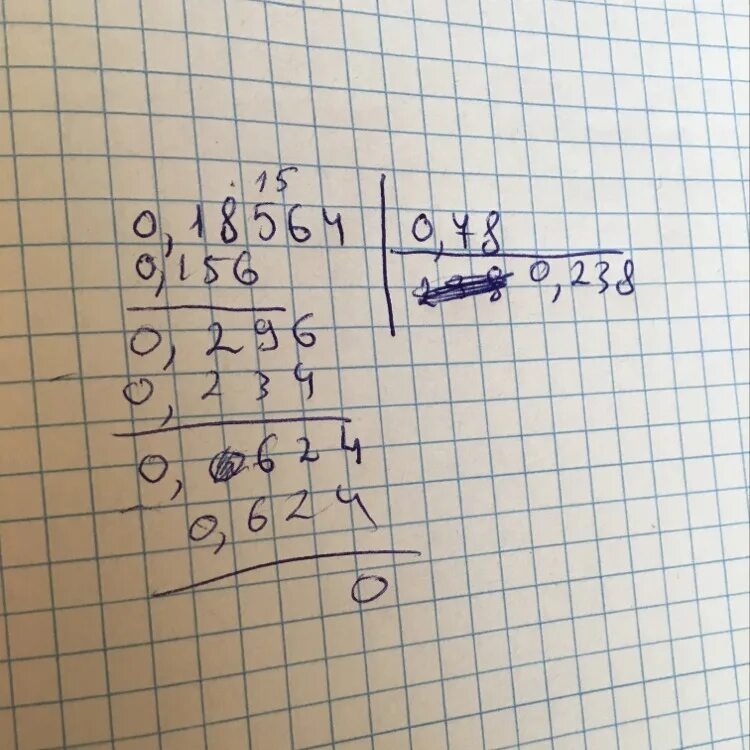 15
0,18564 0,78
0,156 0,238
0,296
0,234
0,624
0,624
0